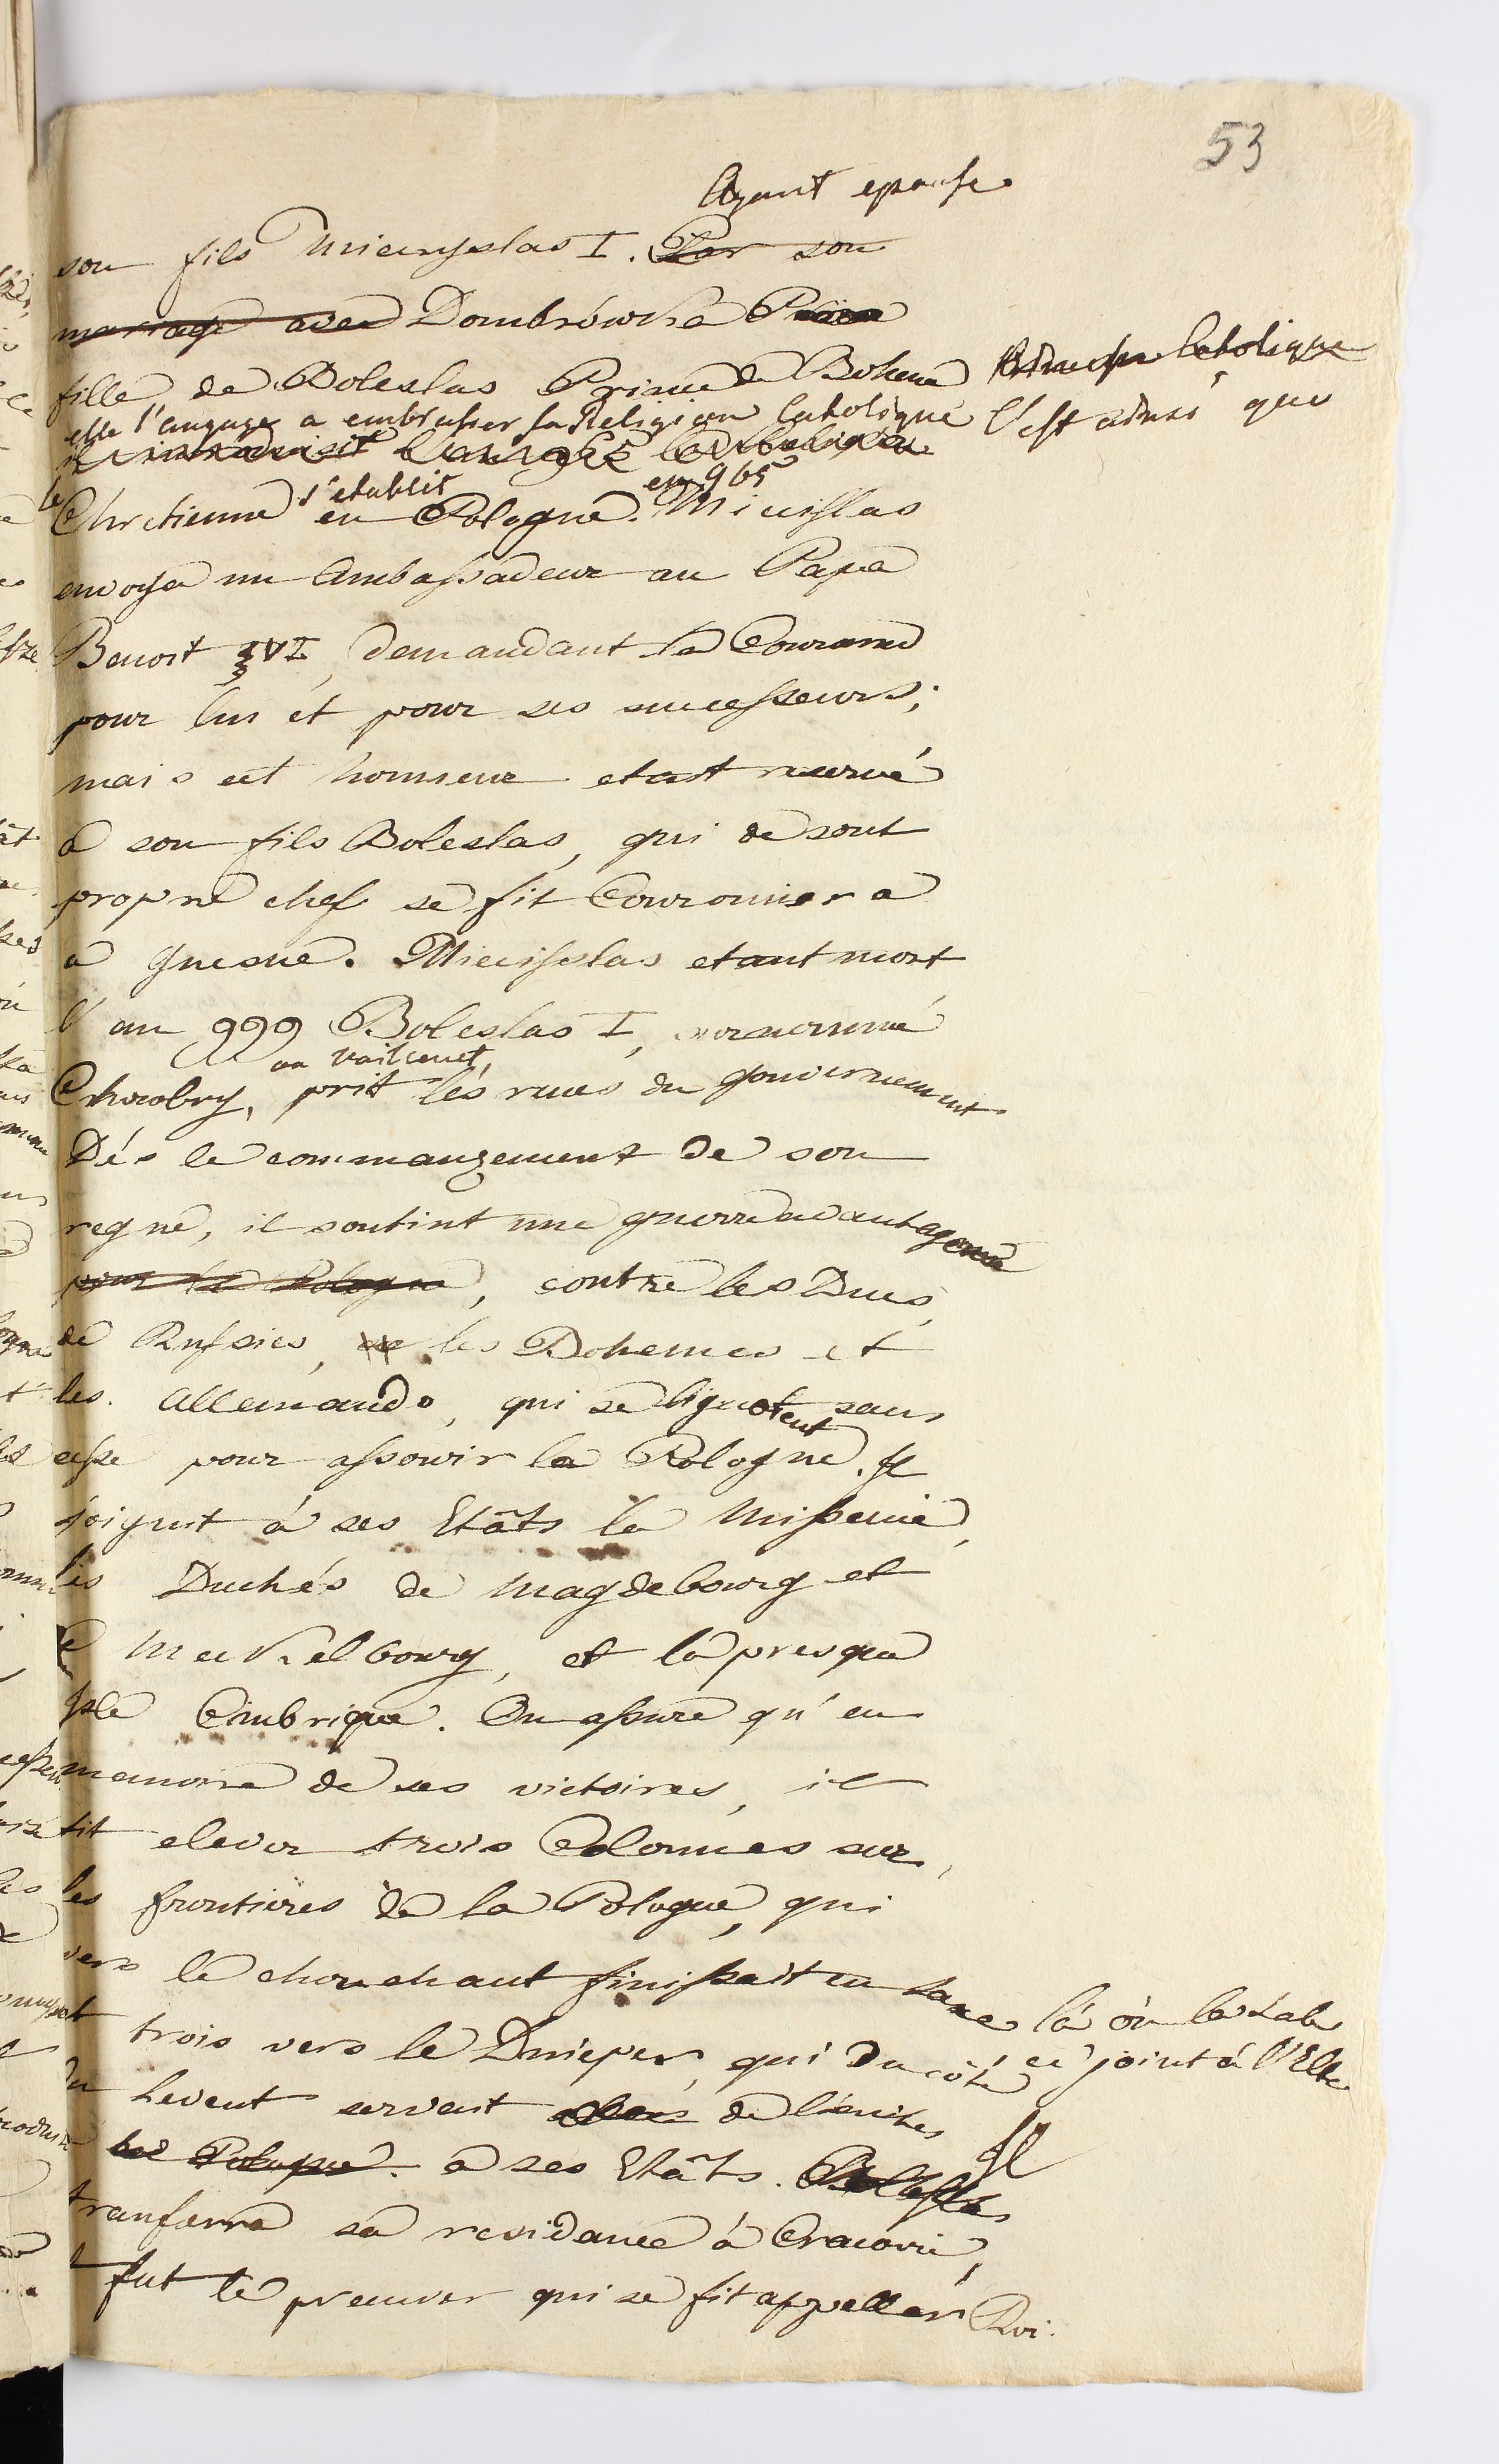 53
Ayant epousé
son fils Miecryslas I. Par son
marriage avec Dombrówka
fille de Boleslas Prince de Boheme Catolique
elle l'engagea a embrasser sa Religion Catolique C'est ainsi que
le s'etablit en 965
Chretienne en Pologne. Miecislas
envoya un Ambassadeur au Pape
Benoit VI, demandant la Couronne
pour lui et pour ses successeurs;
mais cet honneur etait reservé
a son fils Boleslas, qui de sont
propre chef se fit Couronner a
a Gnesne. Miecislas etant mort
l'an 999 Boleslas I, surnommé
ou vaillant
Chrobry, prit les renes du gouvernement
Dés le commanzement de son
regne, il soutint une guerre avantageuse
pour la Pologne, contre les Ducs
de Russies, les Bohemes et
les Allemands, qui se liguoient sans
cesse pour assovir la Pologne. Il
joignit á ses Etâts la Missenie,
les Duchés de Magdebourg et
le Meckelbourg, et la presque
Isle Cimbrique. On assure qu'en
memoire de ses victoires, il
fit elever trois Colonnes sur
les frontieres de la Pologne, qui
vers le chouchant finissait en Saxe lá où la Sale
et trois vers le Dnieper, qui du côté se joint á l'Elbe
du Levent servait de limites
la Pologne. a ses Etâts. Boleslas Il
tranferra sa residance á Cracovie,
fut le premier qui se fit appeller Roi.